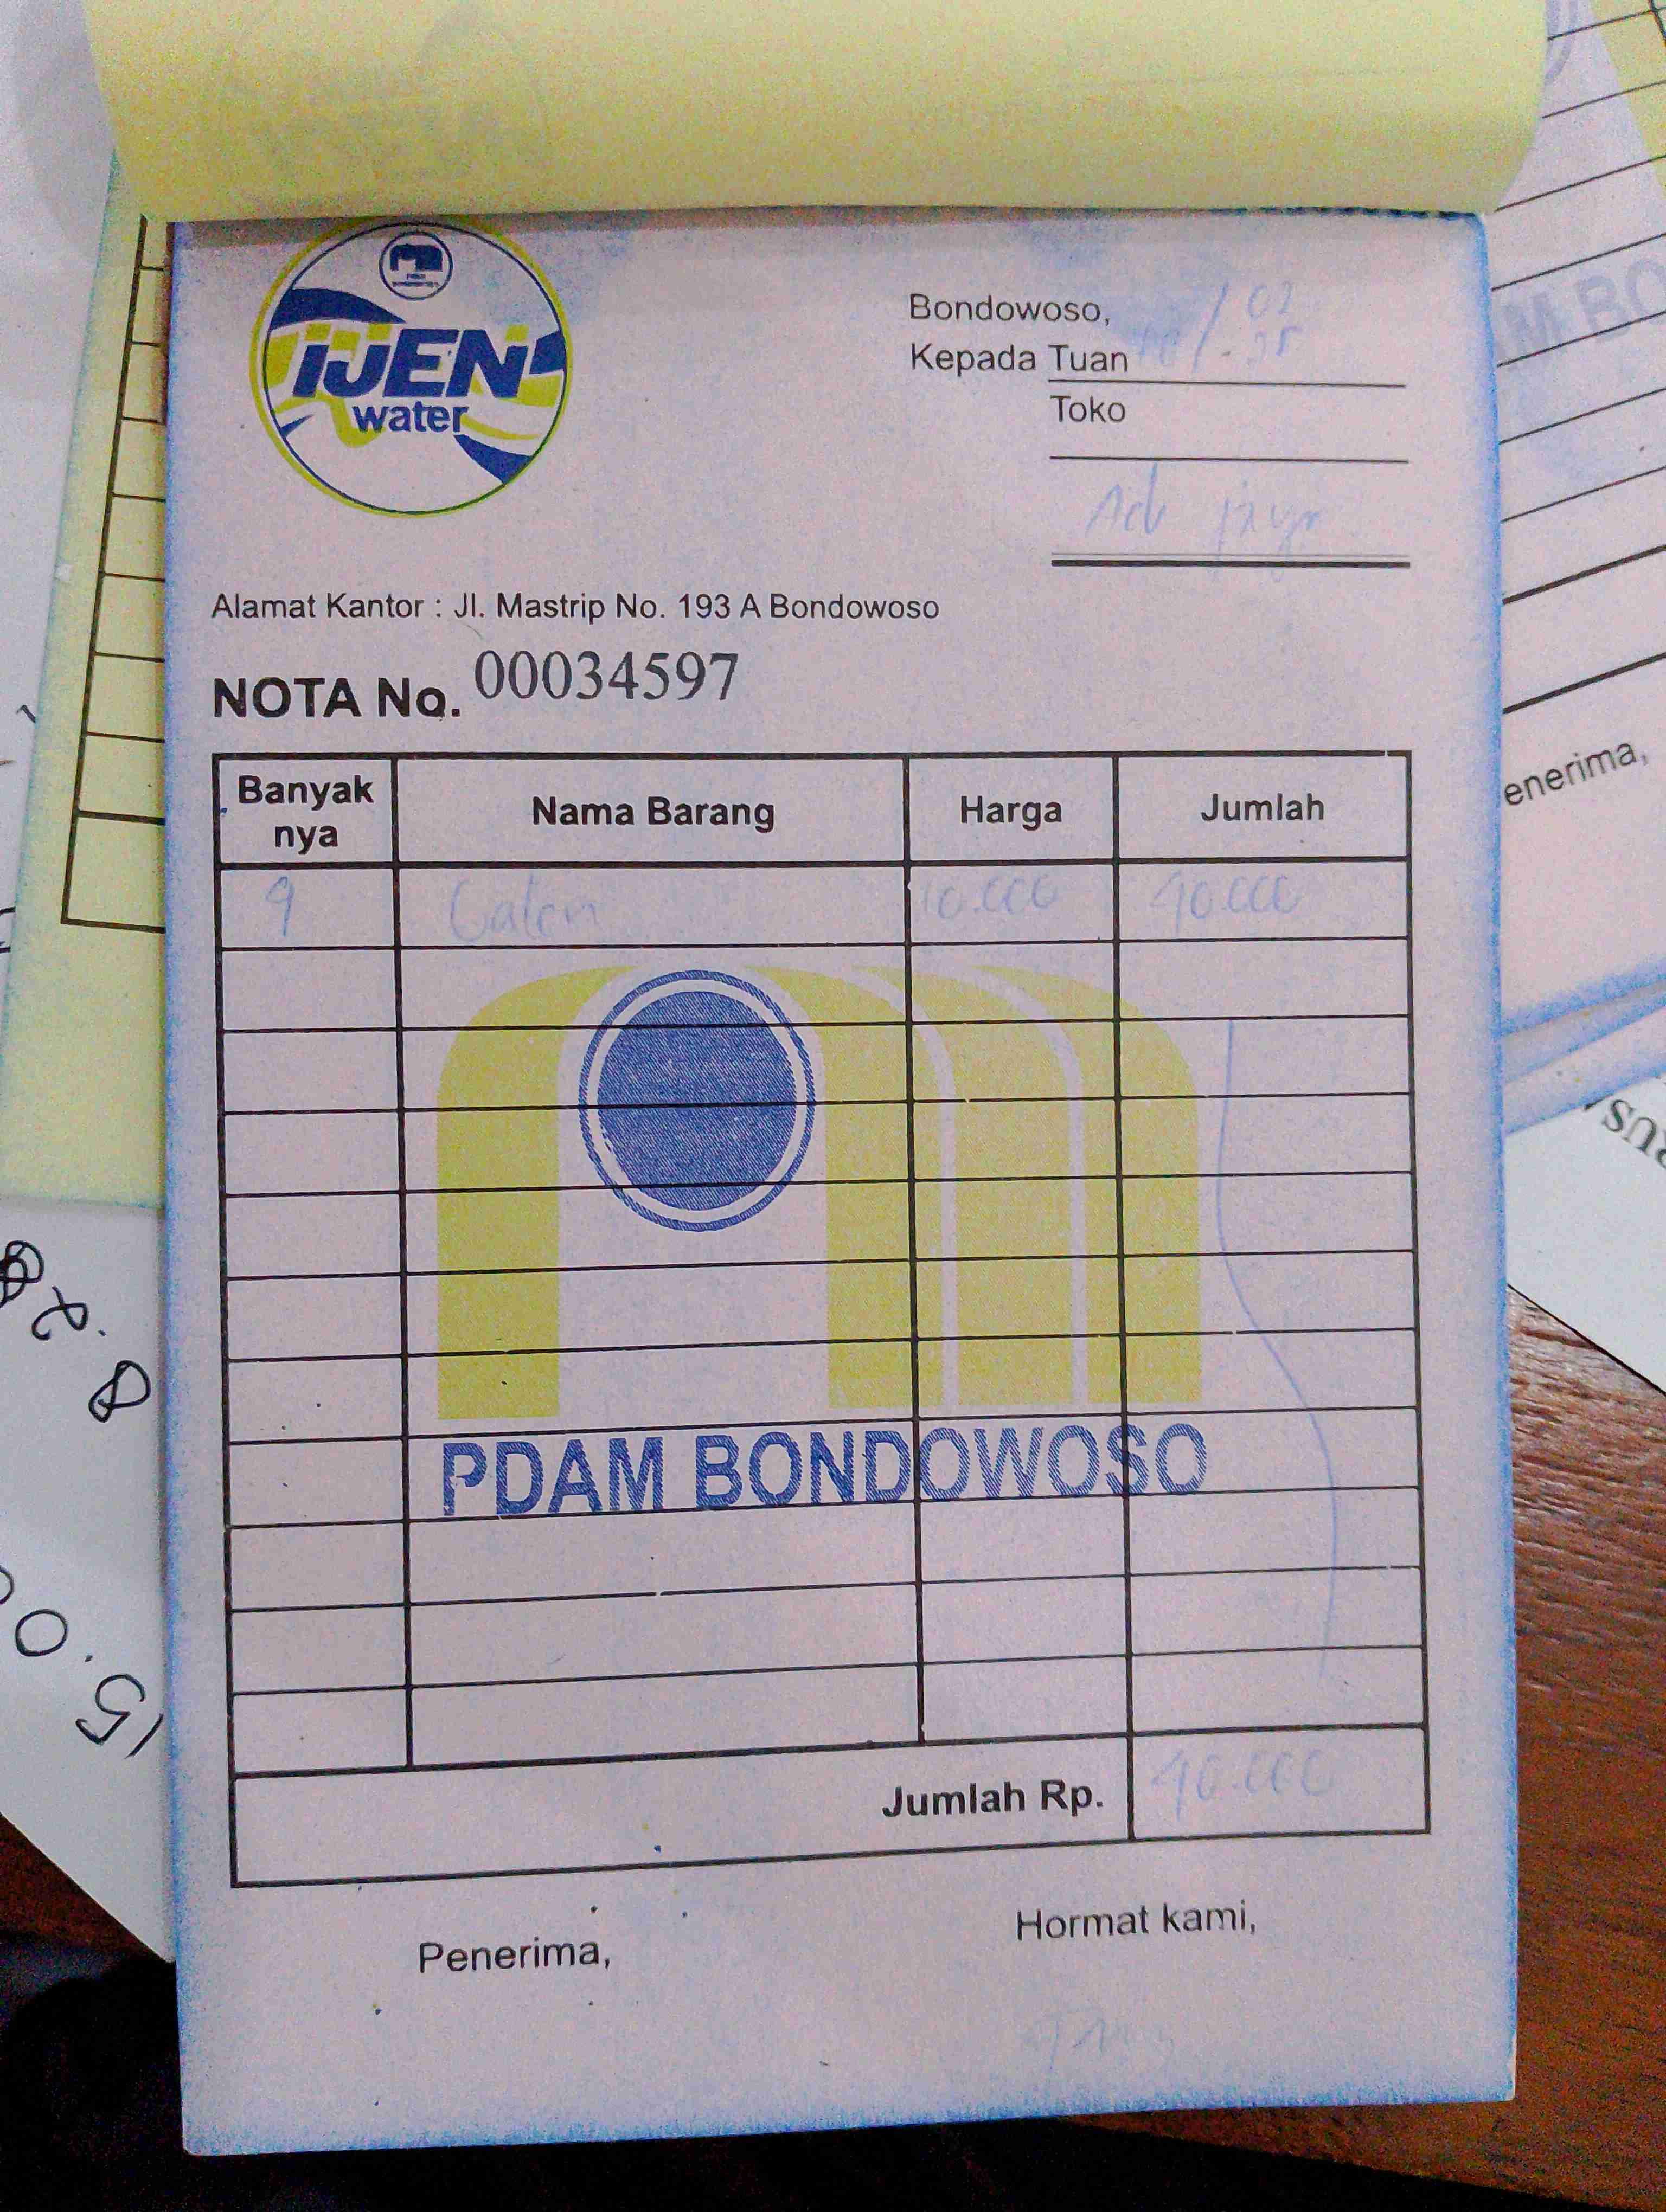 IJEN
water
Bondowoso, 02
Kepada Tuan
Toko
Alamat Kantor : Jl. Mastrip No. 193 A Bondowoso
NOTA No. 00034597
Banyak nya Nama Barang Harga Jumlah
9 Galon 10.000 90.000
PDAM BONDOWOSO
Jumlah Rp. 90.000
Penerima, Hormat kami,
enerima,
AM BO
8.28
15.0